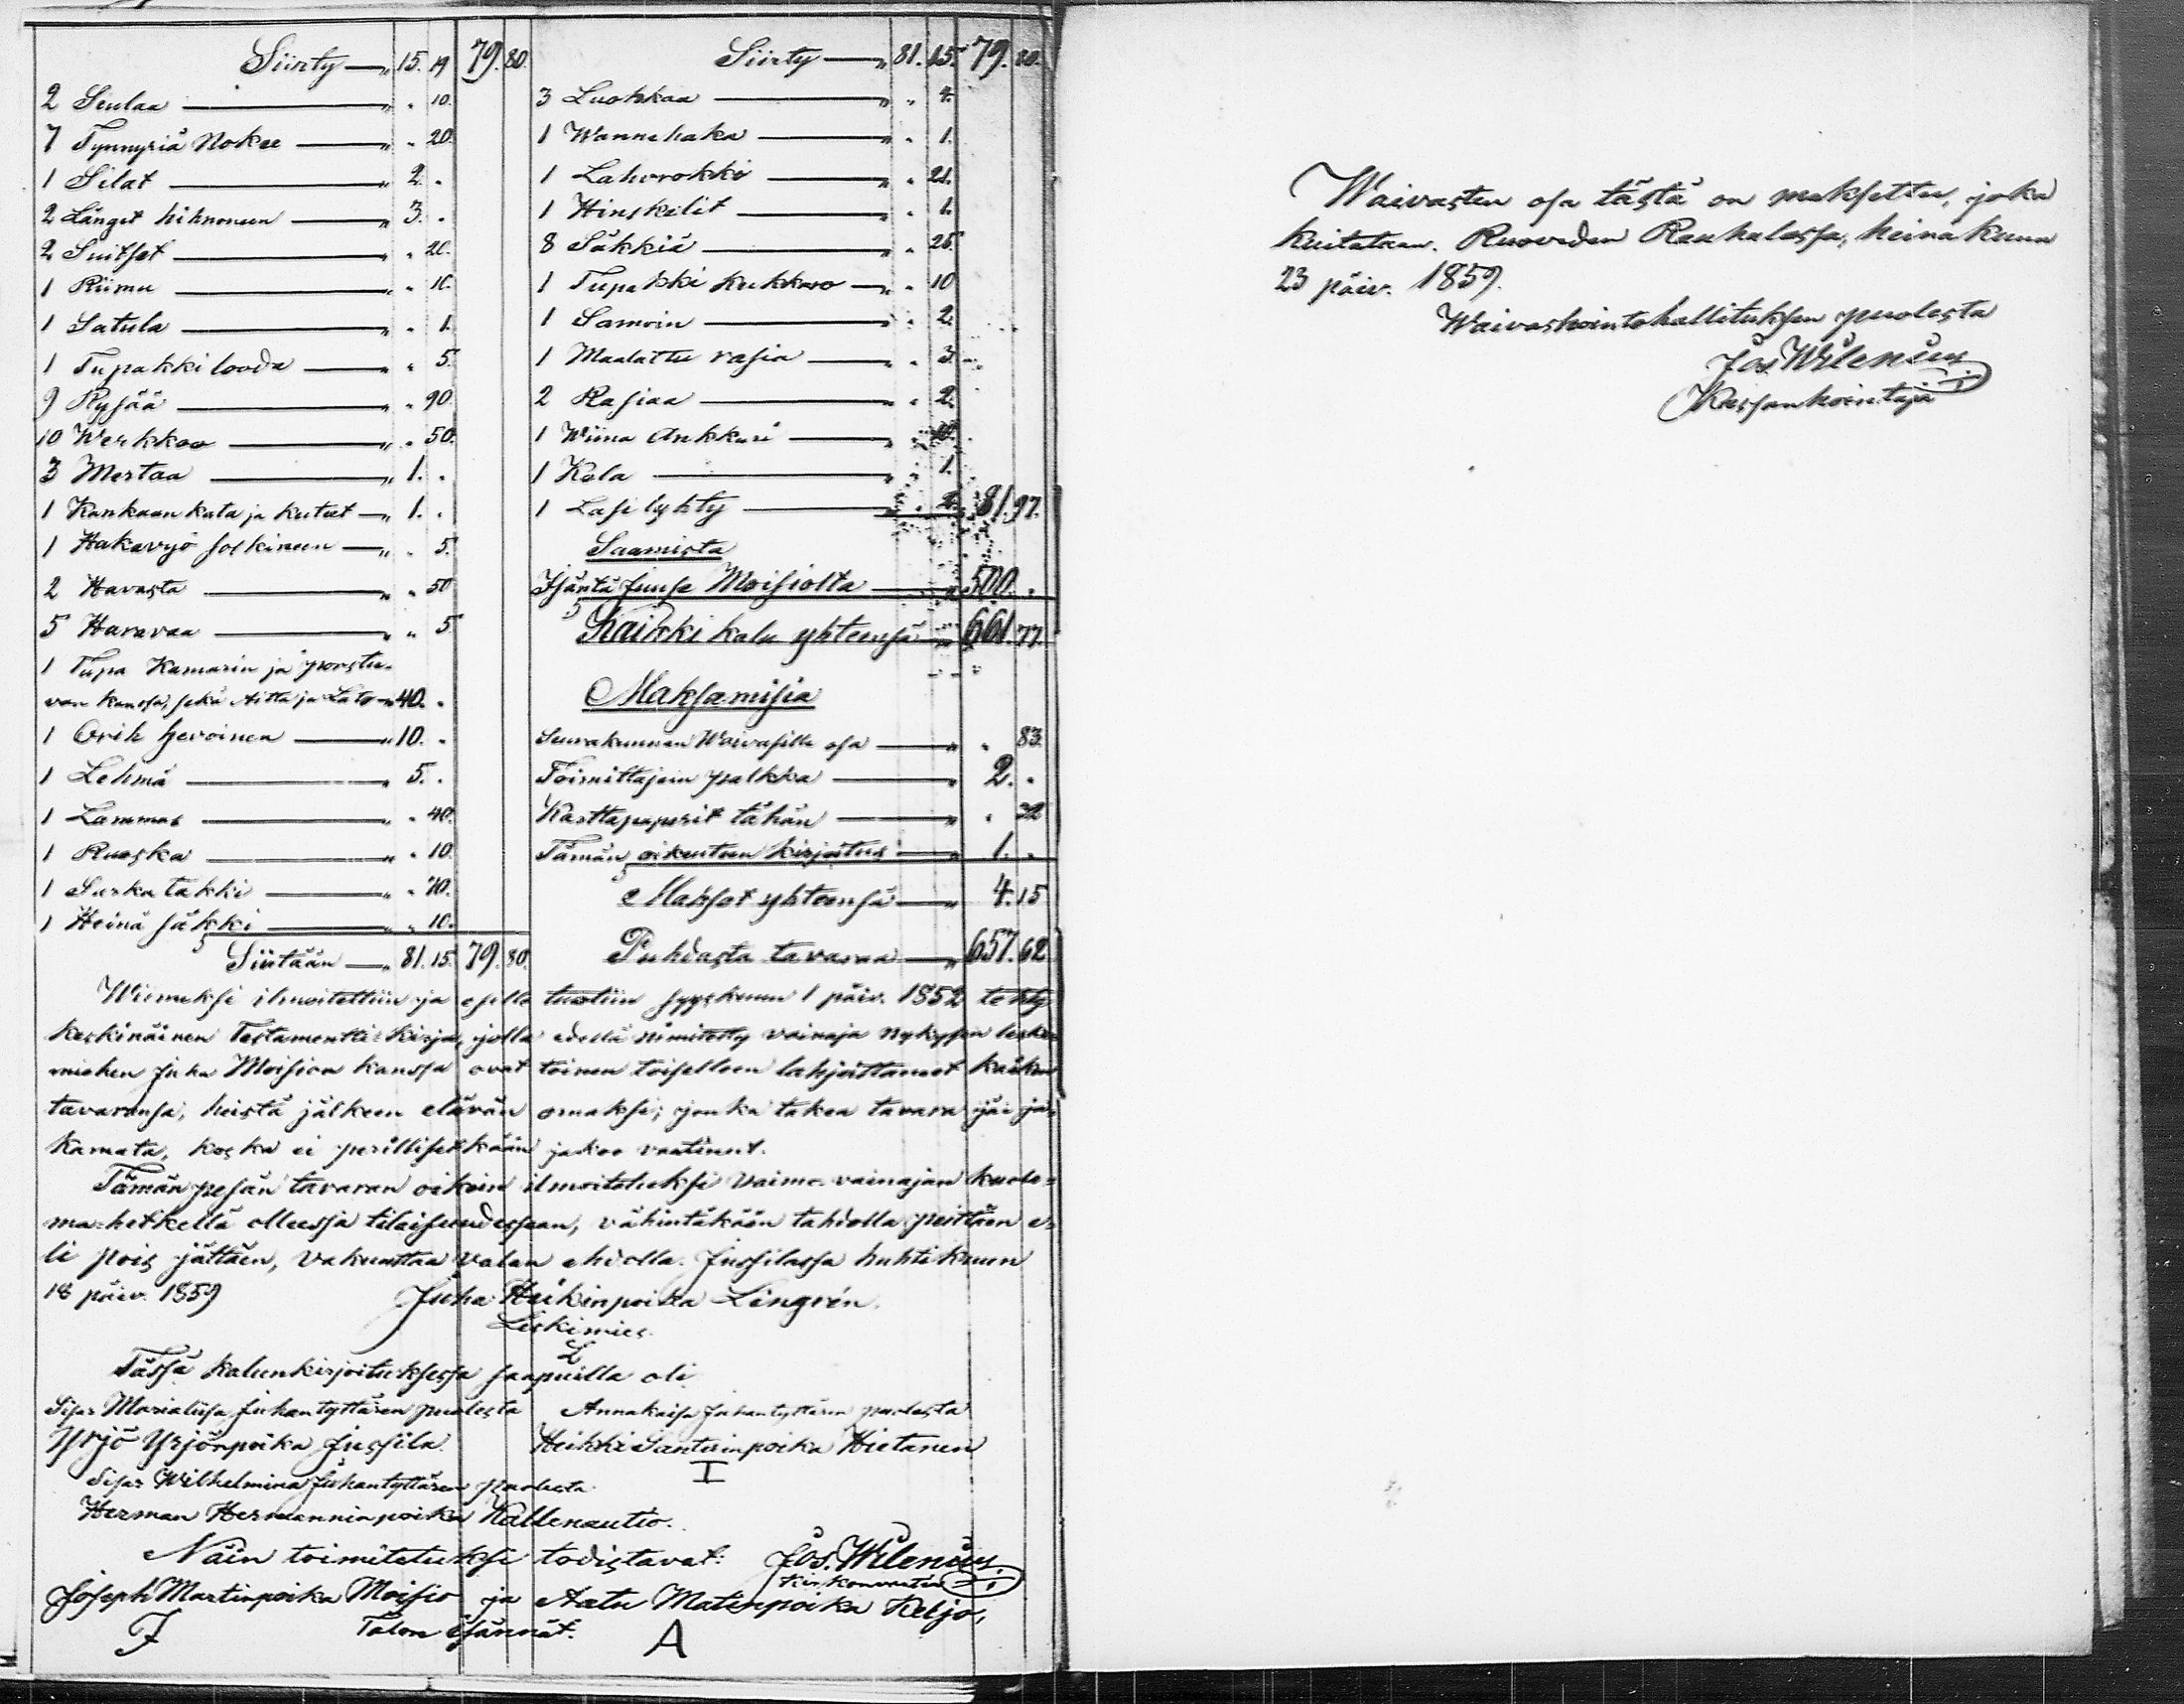 Siirty — „ 15. 19 79. 80.
2 Seulaa — „ „ 10.
7 Tynnyriä Nokee — „ „ 20.
1 Silat — „ 2. „
2 Länget hihnoneen — „ 3. „
2 Suitset — „ „ 20.
1 Riimu — „ „ 10.
1 Satula — „ „ 1.
1 Tupakkilooda — „ „ 5.
9 Rysää — „ „ 90.
10 Werkkoo — „ „ 50.
3 Mertaa — „ 1. „
1 Kankaan kata ja kuteet — „ 1. „
1 Hakavyö solkineen — „ „ 5.
2 Havasta — „ „ 50
5 Haravaa — „ „ 5
1 Tupa Kamarin ja porstu-
van kanssa, sekä Aitta ja Lato — „ 40. „
1 Orih hevoinen — „ 10. „
1 Lehmä — „ 5. „
1 Lammas — „ „ 40.
1 Ruoska — „ „ 10.
1 Sarka takki — „ „ 70.
1 Heinä säkki — „ „ 10.
Siirtään — „ 81. 15. 79. 80.
Siirty — „ 81. 15. 79. 80.
3 Luokkaa — „ „ 4.
1 Wannehaka — „ „ 1.
1 Lahvrokki — „ „ 21.
1 Hinskelit — „ „ 1.
8 Säkkiä — „ „ 25.
1 Tupakki kukkaro — „ „ 10
1 Samoin — „ „ 2.
1 Maalattu rasia — „ „ 3.
2 Rasiaa — „ „ 2.
1 Wiina Ankkuri — „ „ 10.
1 Kola — „ „ 1.
1 Lasi lyhty — „ „ 2. 81. 97.
Saamista
Isäntä Juuse Moisiolta — „ 500. „
Kaikki kalu yhteensä — „ 661. 77.
Maksamisia
Seurakunnan Waivasille osa — „ „ 83.
Toimittajain palkka — „ 2. „
Karttapaperit tähän — „ „ 32
Tämän oikeuteen kirjoitus — „ 1. „
Maksot yhteensä — „ 4. 15
Puhdasta tavaraa — „ 657. 62
Wiimeksi ilmoitettiin ja esille tuotiin syyskuun 1 päiv. 1852 tehty
keskinäinen Testamentti-kirja, jolla edellä nimitetty vainaja nykysen leski-
miehen Juha Moision kanssa ovat toinen toisellen lahjoittaneet kaiken
tavaransa, heistä jälkeen elävän omaksi; jonka takea tavara jäi ja-
kamata, koska ei perillisetkään jakoo vaatineet.
Tämän pesän tavaran oikein ilmoitetuksi Vaimo-vainajan kuole-
ma-hetkellä olleessa tilaisuudessaan, vähintäkään tahdolla peittäen e-
li pois jättäen, vakuuttaa Valan ehdolla. Jussilassa huhtikuun
18 päiv. 1859 Juha Heikinpoika Lingren.
Leskimies.
Tässä kalunkirjoituksessa saapuilla oli
Sisar Marialiisa Juhantyttären puolesta Annakaisa Juhantyttären puolesta
Yrjö Yrjönpoika Jussila. Heikki Santerinpoika Hietanen
I
Sisar Wilhelmina Juhantyttären puolesta
Herman Hermanninpoika Kallenautio.
Näin toimitetuksi todistavat: Jos. Wilenius
Kirkonvartia
Joseph Martinpoika Moisio ja Aatu Matinpoika Keljo,
Talon isännät.
J A
Waivasten osa tästä on maksettu, joka
kuitataan. Ruoveden Rauhalassa, heinäkuun
23 päiv. 1859.
Waivashointohallituksen puolesta
Jos. Wilenius
Kassanhointaja